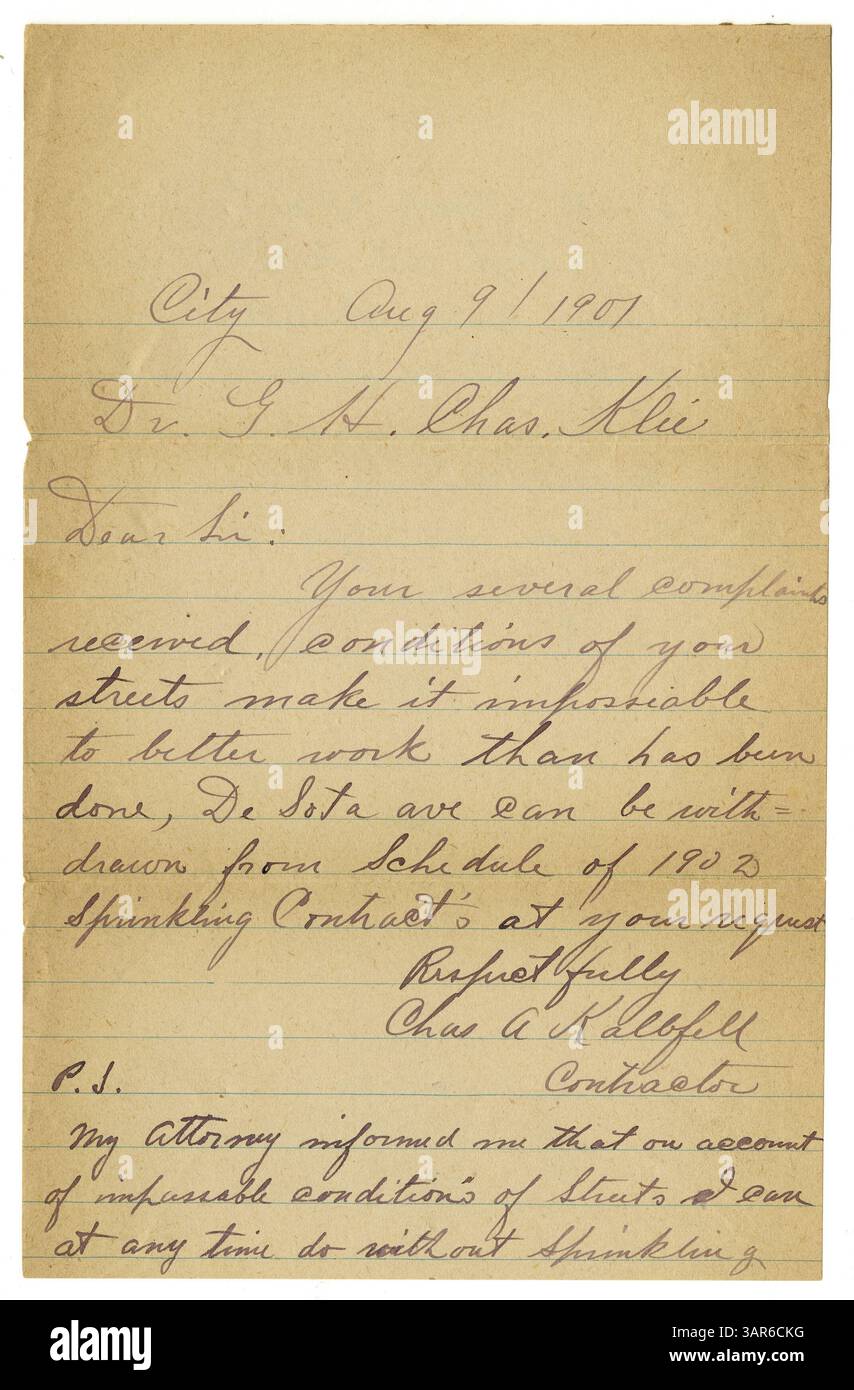 City Aug 9/1901
Dr. G. H. Chas. Klie
Dear Sir:
Your several complaints
received, conditions of your
streets make it impossiable
to better work than has been
done, De Sota ave can be with=
drawn from Schedule of 1902
Sprinkling Contract's at your request
Respectfully
Chas A Kalbfell
Contractor
P.S.
My Attorney informed me that on account
of impassable condition's of Streets I can
at any time do without Sprinkling
alamy
a
alamy
Image ID: 3AR6CKG
www.alamy.com